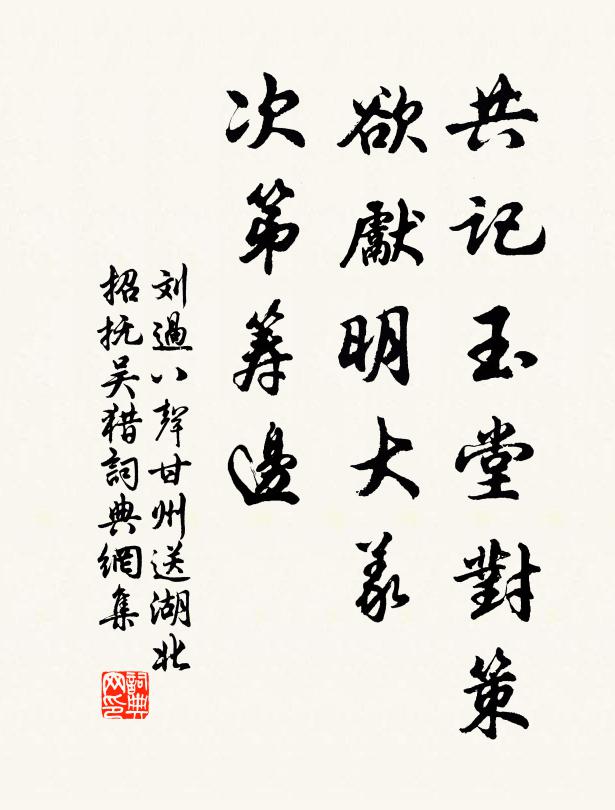 共记玉堂對策
欲獻明大義
次第筹邊
刘過八聲甘州送湖北
招抚吴猎詞典網集
詞典
网印